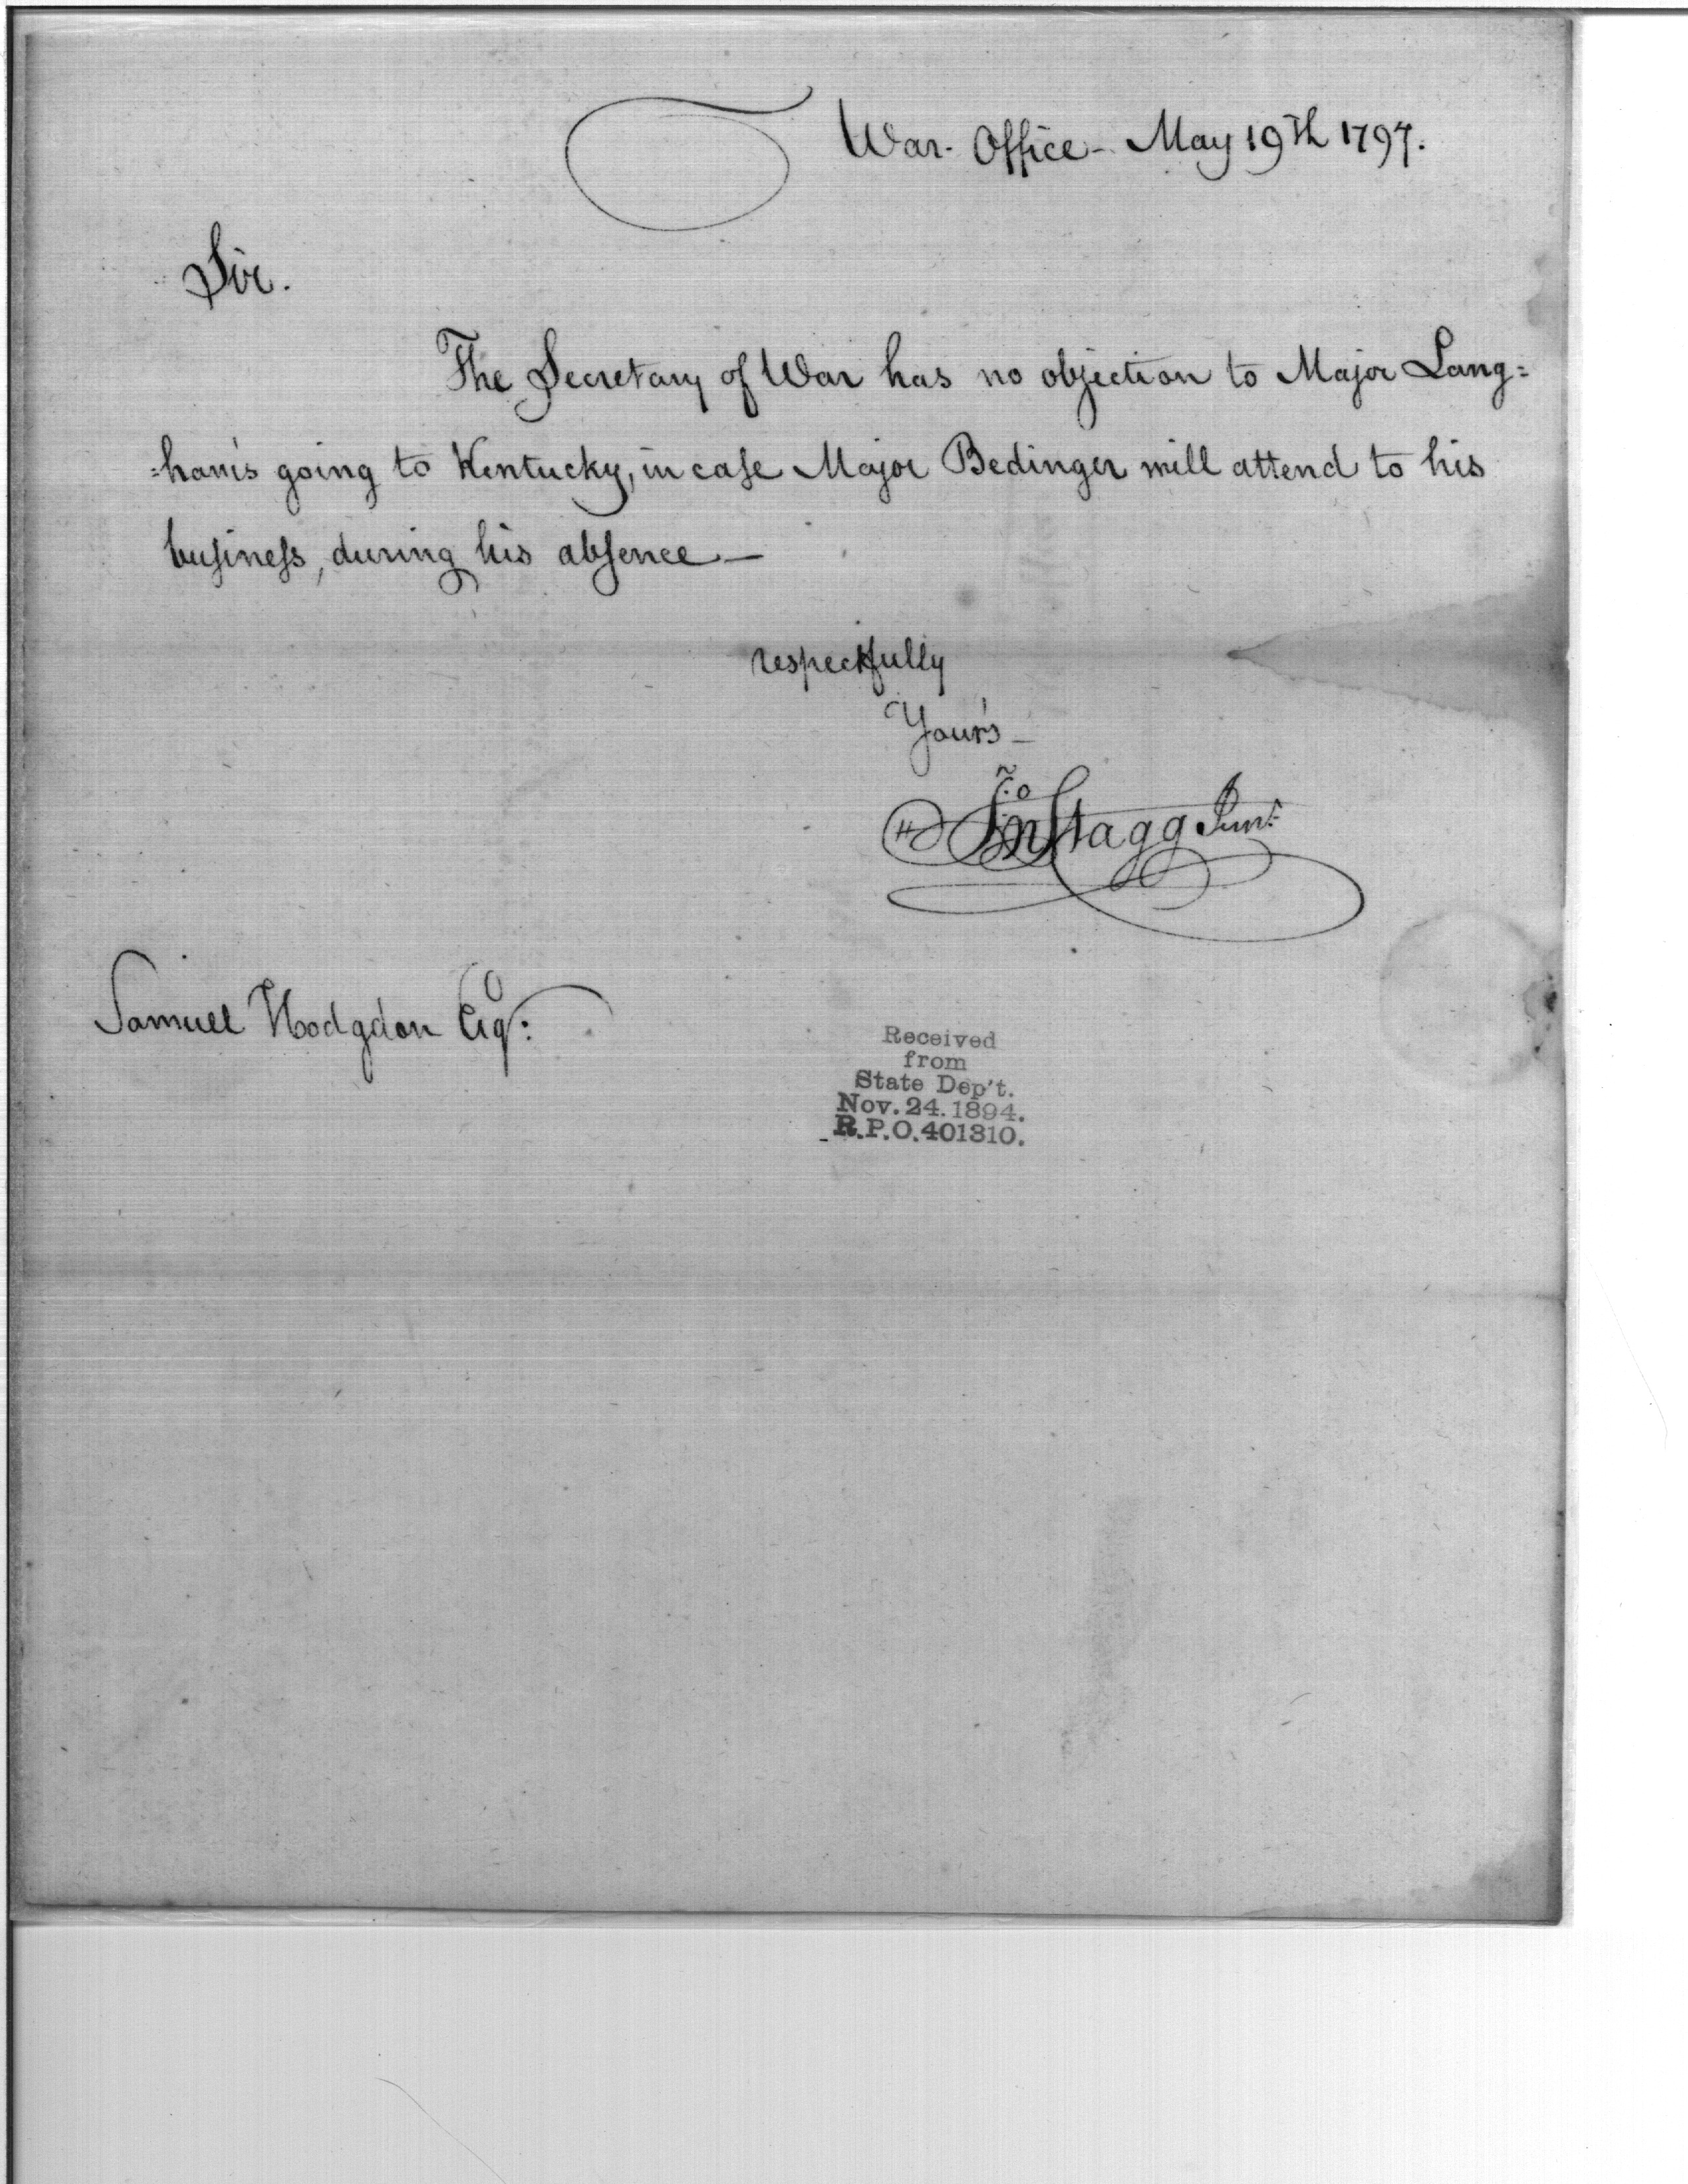 War- Office- May 19th 1797.
Sir.
The Secretary of War has no objection to Major Lang=
=ham's going to Kentucky, in case Major Bedinger will attend to his
business, during his absence —
respectfully
Your's —
Jno Stagg Junr:
Samuel Hodgdon Esqr:
Received
from
State Dep't.
Nov. 24. 1894.
R.P.O. 401310.